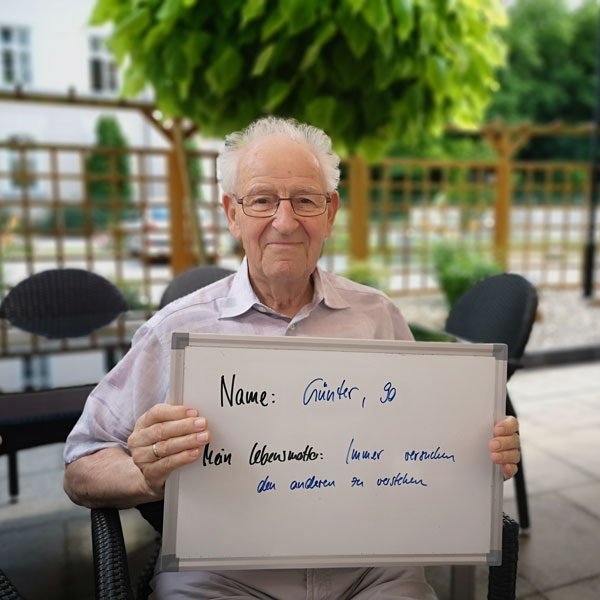 Name: Günter, 90
Mein Lebensmotto: Immer versuchen
den anderen zu verstehen